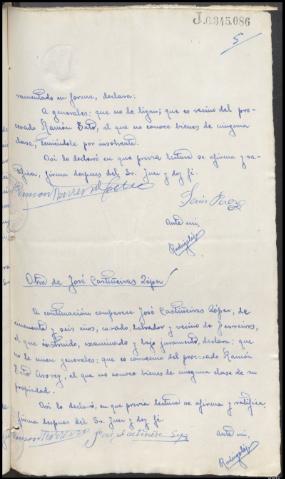 J.0345.086
5
ramentado en forma, declara:
A generales: que no le ligan; que es vecino del pro-
cesado Ramón Brto, el que no conoce bienes de ninguna
clase, teniéndole por insolvente.
Así lo declaró en que previa lectura se afirma y ra-
tifica, firma despues del Sr. Juez y doy fé.
Ante mi,
Otra de José Castiñeiras López
A continuación comparece José Castiñeiras López, de
cincuenta y seis años, casado, labrador y vecino de
el que instruido, examinado y bajo juramento, declara: que
no le unen generales: que es convecino del procesado Ramón
el que no conoce bienes de ninguna clase de su
propiedad.
Así lo declaró, en que previa lectura se afirma y ratifica,
firma despues del Sr. Juez y doy fé.
Ante mi,